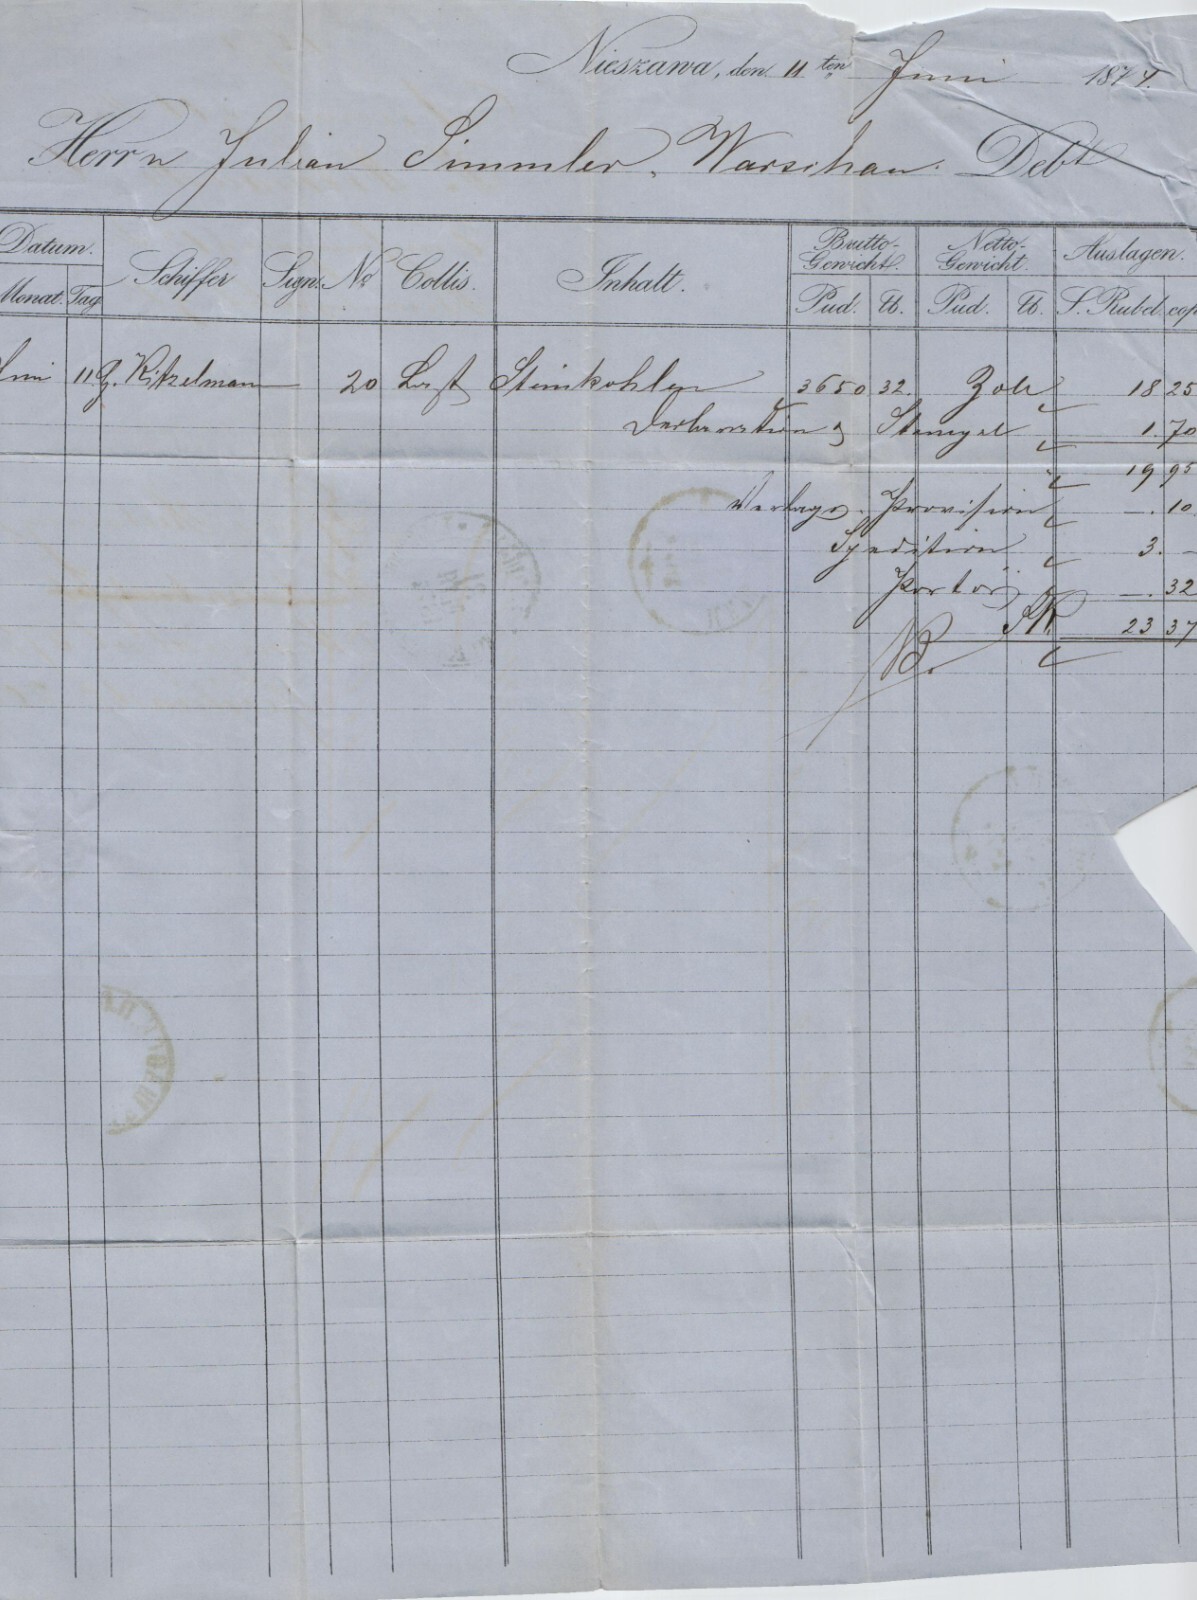 Nieszawa, den 11ten Juni 1874.
Herrn Julian Simmler, Warschau. Debt
Datum. Schiffer Sign. No Collis. Inhalt. Brutto-Gewicht. Netto-Gewicht. Auslagen.
Monat. Tag. Pud. ℔. Pud. ℔. S. Rubel cop
Juni 11 G. Kitzelmann 20 Last Steinkohlen 3650 32. Zoll 18 25
Declaration & Stempel 1. 70
19 95
Verlags. Provision —. 10
Spedition 3. —
Porto —. 32
SR. 23 37